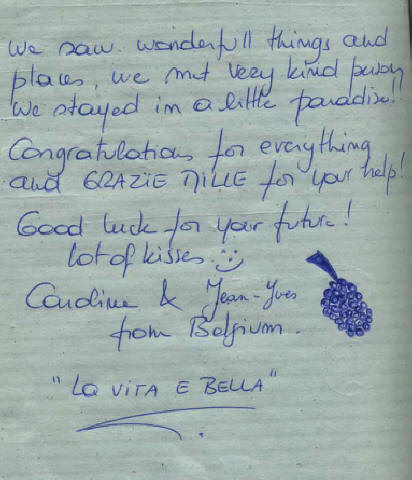 We saw wonderfull things and
places, we met very kind person
we stayed in a little paradise!!
Congratulations for everything
and GRAZIE MILLE for your help!
Good luck for your future!
lot of kisses. :)
Caroline & Jean-Yves
from Belgium.
"LA VITA E BELLA"